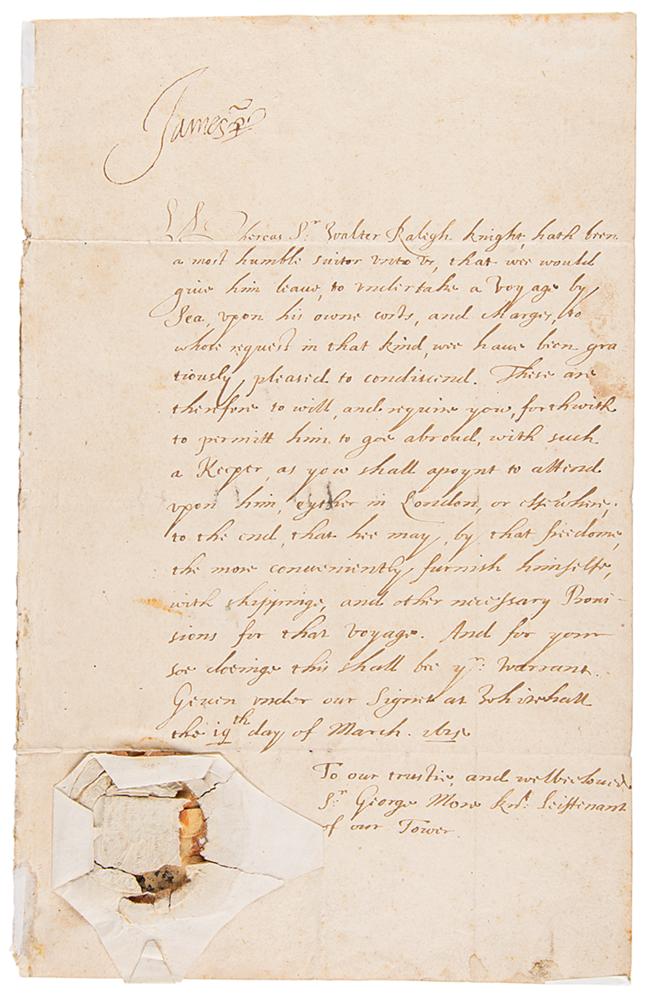 James R
Whereas Sr Walter Ralegh knight, hath been
a most humble suitor vnto vs, that wee would
giue him leaue, to vndertake a Voyage by
Sea, vpon his owne costs, and Charges, to
whose request in that kind, wee haue been gra
tiously pleased to condiscend. These are
therefore to will, and require yow, forthwith
to permitt him to goe abroad, with such
a Keeper, as yow shall apoynt to attend
vpon him, eyther in London, or elswhere,
to the end, that hee may, by that freedome,
the more conueniently furnish himselfe,
with shippinge, and other necessary Proui-
sions for that Voyage. And for your
soe doeinge this shall bee yr: warrant.
Geuen vnder our Signet at Whitehall
the 19th day of March. 1615
To our trustie, and welbeloued
Sr George More Knt: Leiftenant
of our Tower.